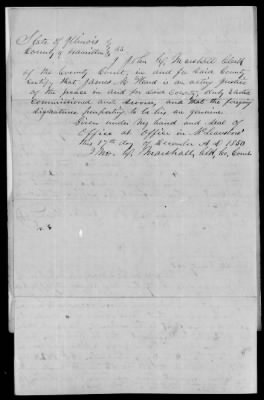 State of Illinois
County of Hamilton } ss
I John W. Marshall Clerk
of the County Court, in and for said County
Certify that James M. Hand is an acting justice
of the peace in and for said County, duly Elected
Commissioned and sworn, and that the foregoing
Signature purporting to be his are genuine
Given under my hand and seal of
Office at Office in McLeansboro
this 17th day of December A D 1850
Jno. W. Marshall, Clk, Co, Court